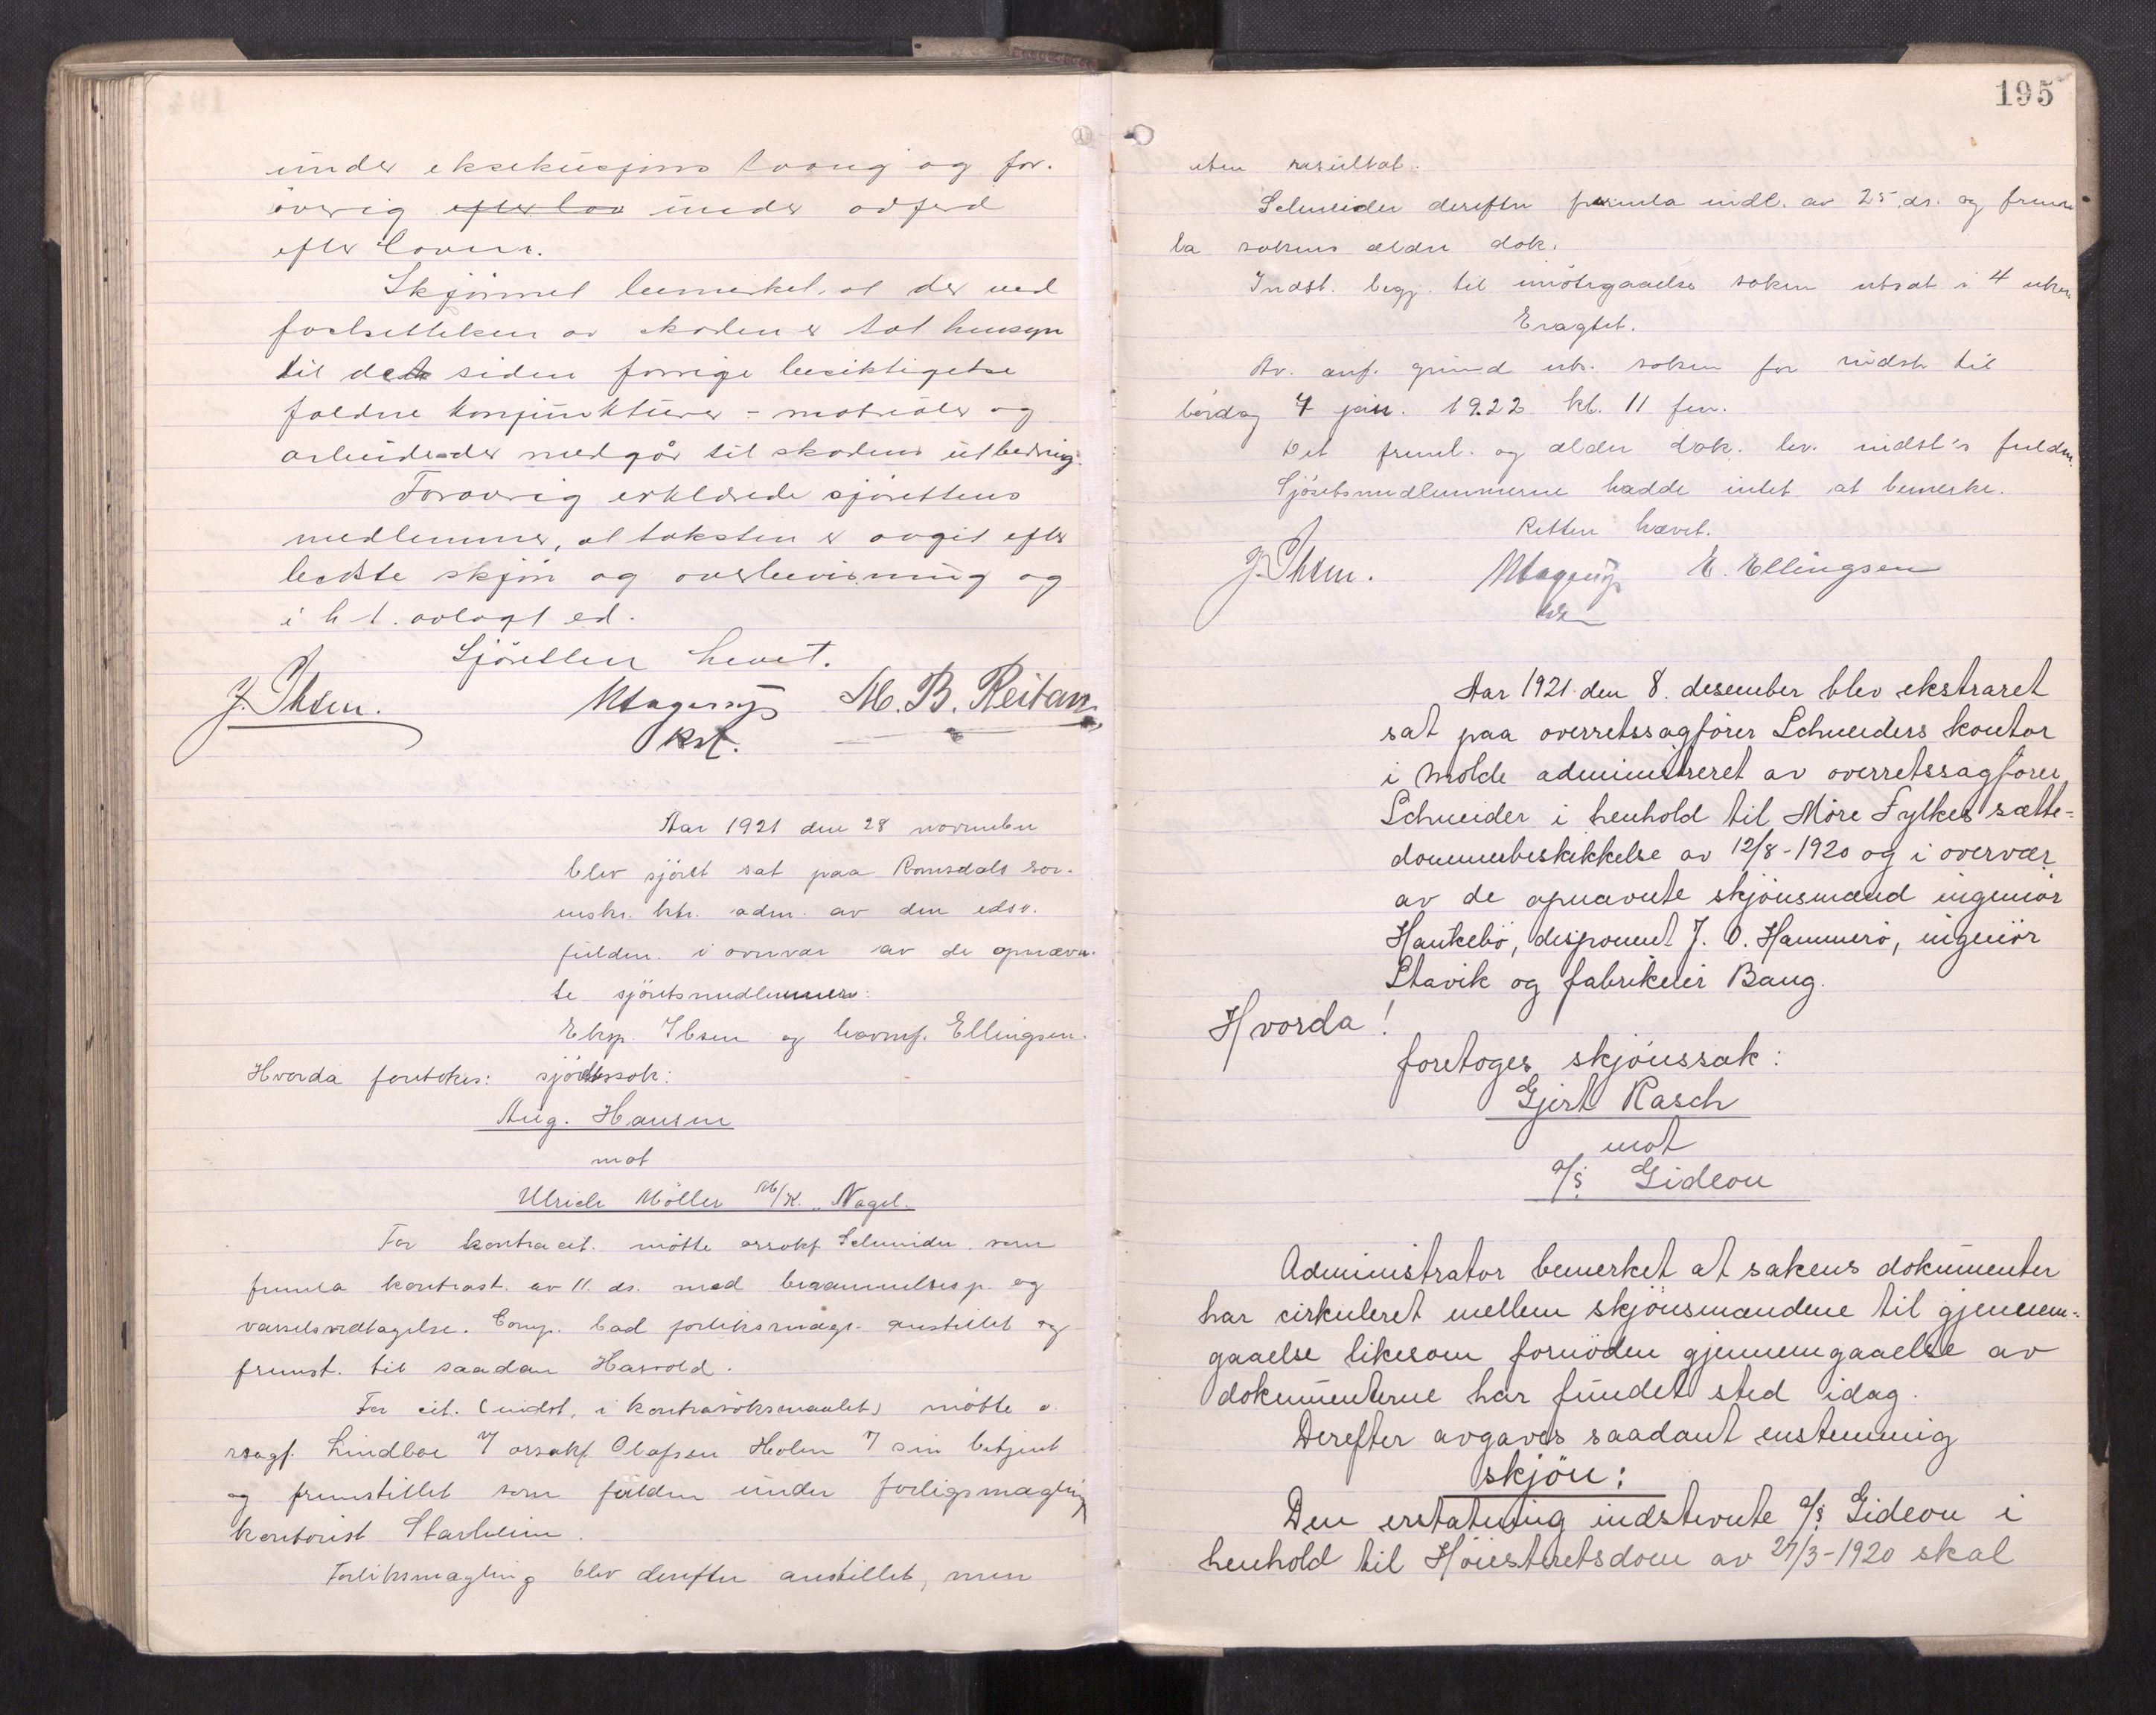 under eksekusjons tvang og for-
øvrig efter lov under adferd
efter loven.
Skjønnet bemerket, at der ved
fastsettelsen av skaden er tat hensyn
til de siden forrige besiktigelse
faldne konjunkturer - materialer og
arbeide der medgår til skadens utbedring.
Forøvrig erklærede sjørettens
medlemmer, at taksten er avgit efter
bedste skjøn og overbevisning og
i h t. avlagt ed.
Sjøretten hevet.
J. Ibsen.
M. B. Reitan
kst.
Aar 1921 den 28 november
blev sjøret sat paa Romsdals sor-
enskr. ktr. adm. av den edsv.
fuldm. i overvær av de opnævn-
te sjøretsmedlemmer:
Eksp. Ibsen og havnef. Ellingsen.
Hvorda foretokes: sjøretssak:
Aug. Hansen
mot
Ulrich Möller M/K. "Nagel.
For kontracit. møtte orsakf. Schneider som
freml a kontrast. av 11. ds. med berammelsesp. og
varselsvedtagelse. Comp. bad forliksmægl. anstillet og
fremst. til saadan Harvold.
For cit. (indst. i kontrasøksmaalet) møtte o-
rsagf. Lindboe f/ orsakf. Olafsen Holm f sin betjent
og fremstillet som fuldm under forligsmægling
kontorist Starheim.
Forliksmægling blev derefter anstillet, men
195
uten resultat.
Schneider derefter fremla indl. av 25. ds. og freml
la sakens ældre dok.
Indst. begj. til imøtegaaelse saken utsat i 4 uker
Eragtet.
Av. anf. grund uts. saken for indst. til
lørdag 7 jan. 1922 kl. 11 fm.
Det freml. og ældre dok. lev. indst's fuldm.
Sjøretsmedlemmerne hadde intet at bemerke.
Retten hævet.
J. Ibsen.
E. Ellingsen
Aar 1921 den 8. desember blev ekstraret
sat paa overretssagfører Schneiders kontor
i Molde administreret av overretssagfører
Schneider i henhold til Møre Fylkes sætte-
dommerbeskikkelse av 12/8-1920 og i overvær
av de opnævnte skjønsmænd ingeniør
Hankebø, disponent J. O. Hammerø, ingeniør
Stavik og fabrikeier Baug.
Hvorda!
foretoges skjønssak:
Gjert Rasch
mot
a/s Gideon
Administrator bemerket at sakens dokumenter
har cirkuleret mellem skjønsmændene til gjennem-
gaaelse likesom fornøden gjennemgaaelse av
dokumenterne har fundet sted idag.
Derefter avgaves saadant enstemmig
skjøn:
Den erstatning indstevnte a/s Gideon i
henhold til Høiesteretsdom av 27/3-1920 skal